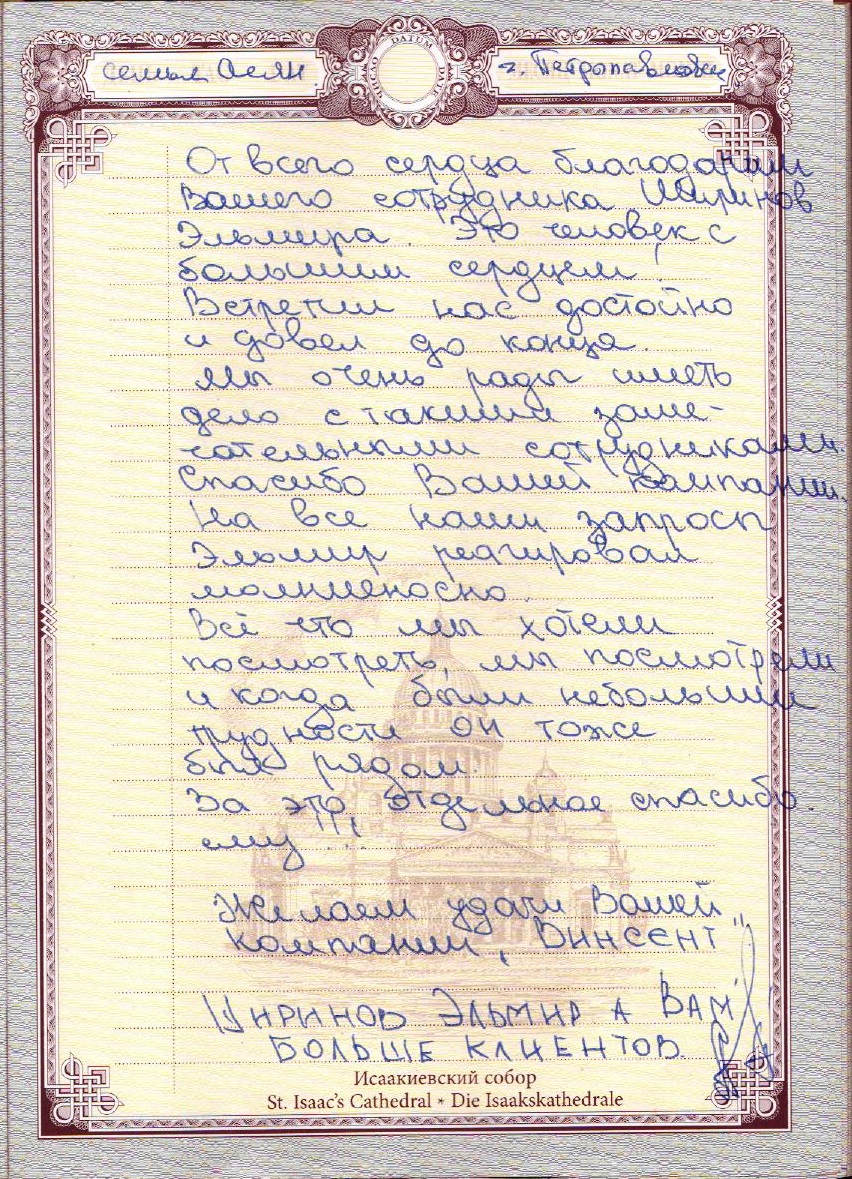 семья Осян
г. Петропавловск
DATUM
От всего сердца благодарим
Вашего сотрудника Ширинов
Эльмира. Это человек с
большим сердцем!
Встретил нас достойно
и довел до конца.
Мы очень рады иметь
дело с такими заме-
чательными сотрудниками.
Спасибо Вашей компании.
На все наши запросы
Эльмир реагировал
молниеносно.
Всё что мы хотели
посмотреть, мы посмотрели
и когда были небольшие
трудности он тоже
был рядом.
За это отдельное спасибо
ему!!!
Желаем удачи Вашей
компании „Винсент"
Ширинов Эльмир а Вам
больше клиентов.
Исаакиевский собор
St. Isaac's Cathedral • Die Isaakskathedrale